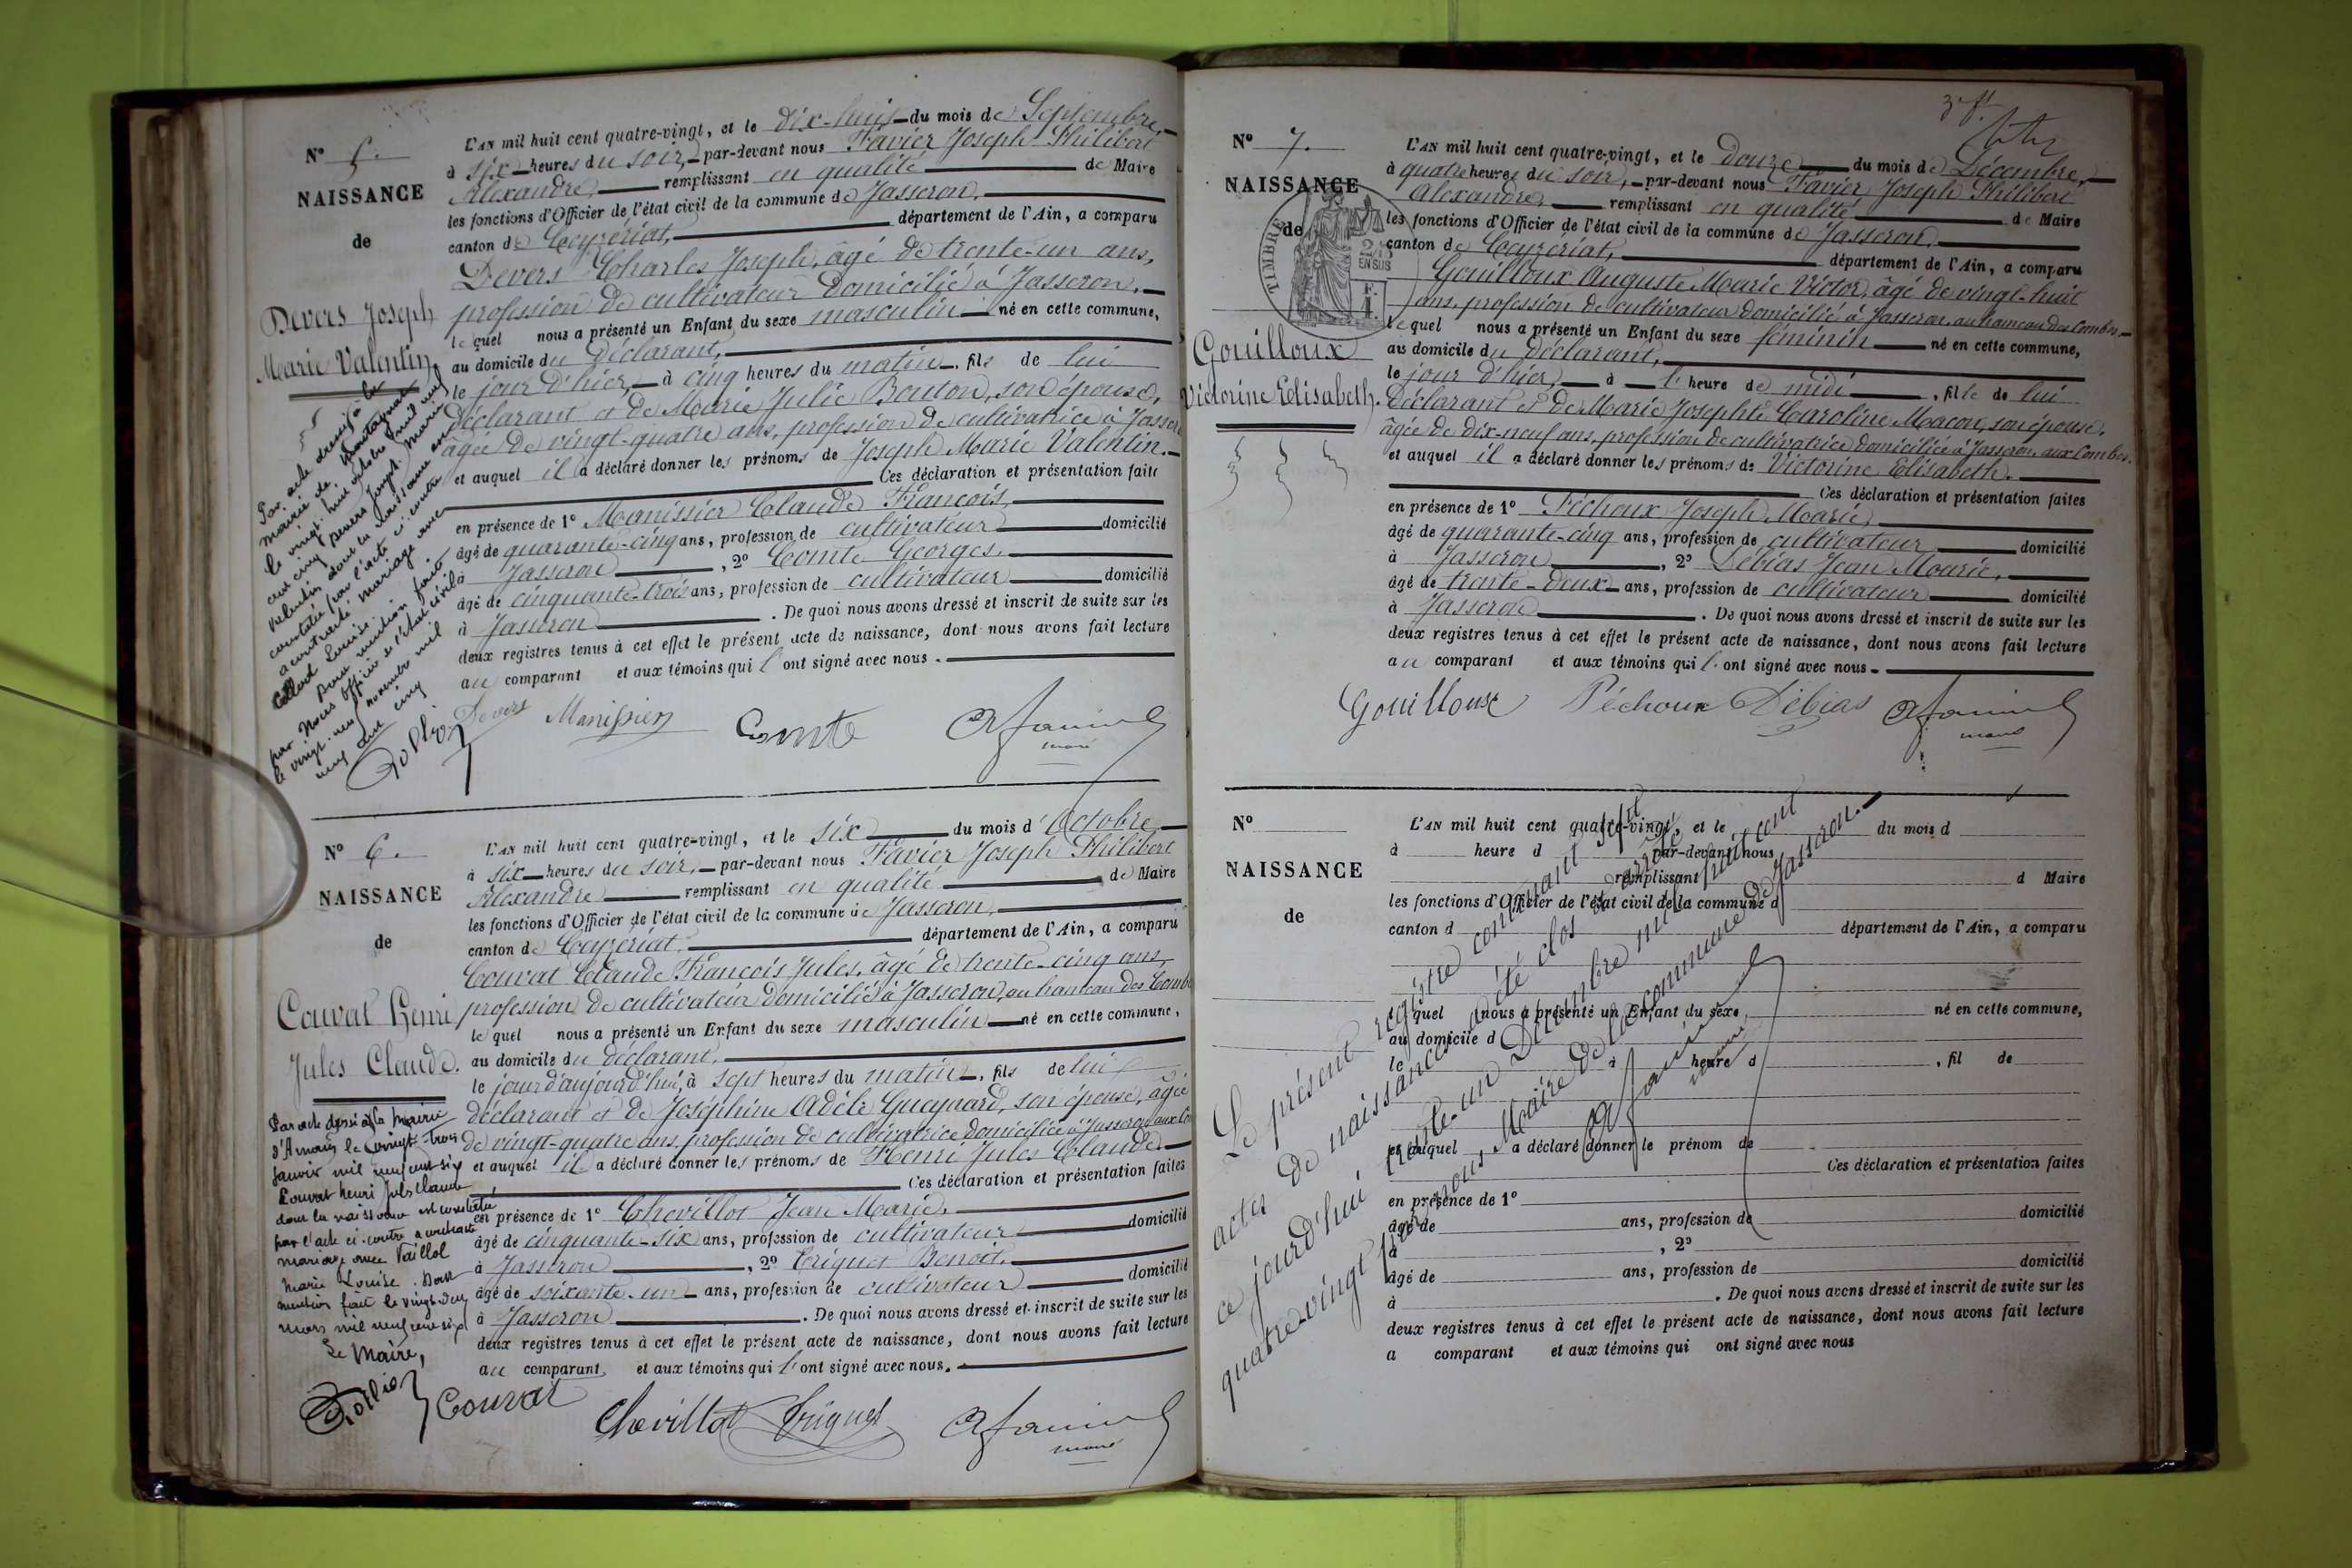 N° 5.
NAISSANCE
de
Devers Joseph
Marie Valentin
L'AN mil huit cent quatre-vingt, et le dix-huit du mois de Septembre,
à six heures du soir, par-devant nous Favier Joseph Philibert
Alexandre, remplissant en qualité de Maire
les fonctions d'Officier de l'état civil de la commune de Jasseron,
canton de Ceyzériat, département de l'Ain, a comparu
Devers Charles Joseph, âgé de trente-un ans,
profession de cultivateur domicilié à Jasseron.
lequel nous a présenté un Enfant du sexe masculin né en cette commune,
au domicile du déclarant,
le jour d'hier, à cinq heures du matin, fils de lui
déclarant et de Marie Julie Bouton, son épouse,
âgée de vingt-quatre ans, profession de cultivatrice à Jasseron
et auquel il a déclaré donner les prénoms de Joseph Marie Valentin.
Ces déclaration et présentation faites
en présence de 1° Manissier Claude François,
âgé de quarante-cinq ans, profession de cultivateur domicilié
à Jasseron, 2° Comte Georges,
âgé de cinquante-trois ans, profession de cultivateur domicilié
à Jasseron. De quoi nous avons dressé et inscrit de suite sur les
deux registres tenus à cet effet le présent acte de naissance, dont nous avons fait lecture
au comparant et aux témoins qui l'ont signé avec nous.
Devers Manissier Comte Afavier
maire
Par acte dressé à la
mairie de Montagnat
le vingt huit octobre mil neuf
cent cinq Devers Joseph Marie
Valentin dont la naissance est
constatée par l'acte ci-contre
a contracté mariage avec
Callard Louise.
Pour mention faite
par Nous officier de l'état civil
le vingt-neuf novembre mil
neuf cent cinq
N° 6.
NAISSANCE
de
Couvat Henri
Jules Claude.
L'AN mil huit cent quatre-vingt, et le six du mois d'Octobre
à six heures du soir, par-devant nous Favier Joseph Philibert
Alexandre remplissant en qualité de Maire
les fonctions d'Officier de l'état civil de la commune de Jasseron,
canton de Ceyzériat, département de l'Ain, a comparu
Couvat Claude François Jules, âgé de trente-cinq ans,
profession de cultivateur domicilié à Jasseron, au hameau des Combes
lequel nous a présenté un Enfant du sexe masculin né en cette commune,
au domicile du déclarant,
le jour d'aujourd'hui, à sept heures du matin, fils de lui
déclarant et de Joséphine Adèle Gueynard, son épouse, âgée
de vingt-quatre ans, profession de cultivatrice domiciliée à Jasseron aux Combes
et auquel il a déclaré donner les prénoms de Henri Jules Claude.
Ces déclaration et présentation faites
en présence de 1° Chevillot Jean Marie,
âgé de cinquante-six ans, profession de cultivateur domicilié
à Jasseron, 2° Triguet Benoit,
âgé de soixante-un ans, profession de cultivateur domicilié
à Jasseron. De quoi nous avons dressé et inscrit de suite sur les
deux registres tenus à cet effet le présent acte de naissance, dont nous avons fait lecture
au comparant et aux témoins qui l'ont signé avec nous.
Couvat Chevillot Triguet Afavier
maire
Par acte dressé à la Mairie
le vingt-trois
janvier mil neuf cent six
Couvat Henri Jules Claude
dont la naissance est constatée
par l'acte ci-contre a contracté
mariage avec Vaillot
Marie Louise. Dont
mention faite le vingt-deux
mars mil neuf cent six
Le Maire,
N° 7.
NAISSANCE
de
TIMBRE
EN SUS
Gouilloux
Victorine Elisabeth.
L'AN mil huit cent quatre-vingt, et le douze du mois de Décembre,
à quatre heures du soir, par-devant nous Favier Joseph Philibert
Alexandre, remplissant en qualité de Maire
les fonctions d'Officier de l'état civil de la commune de Jasseron,
canton de Ceyzériat, département de l'Ain, a comparu
Gouilloux Auguste Marie Victor, âgé de vingt-huit
ans, profession de cultivateur domicilié à Jasseron, au hameau des Combes,
lequel nous a présenté un Enfant du sexe féminin né en cette commune,
au domicile du déclarant,
le jour d'hier, à l'heure de midi, fille de lui
déclarant et de Marie Josephte Caroline Macon, son épouse,
âgée de dix-neuf ans, profession de cultivatrice domiciliée à Jasseron, aux Combes.
et auquel il a déclaré donner les prénoms de Victorine Elisabeth.
Ces déclaration et présentation faites
en présence de 1° Péchoux Joseph Marie,
âgé de quarante-cinq ans, profession de cultivateur domicilié
à Jasseron, 2° Débias Jean Marie,
âgé de trente-deux ans, profession de cultivateur domicilié
à Jasseron. De quoi nous avons dressé et inscrit de suite sur les
deux registres tenus à cet effet le présent acte de naissance, dont nous avons fait lecture
au comparant et aux témoins qui l'ont signé avec nous.
Gouilloux Péchoux Débias Afavier
maire
N°
NAISSANCE
de
L'AN mil huit cent quatre-vingt, et le du mois d
à heure d par-devant nous
remplissant d Maire
les fonctions d'Officier de l'état civil de la commune d
canton d département de l'Ain, a comparu
lequel nous a présenté un Enfant du sexe né en cette commune,
au domicile d
le à heure d , fil de
et auquel a déclaré donner le prénom de
Ces déclaration et présentation faites
en présence de 1°
âgé de ans, profession de domicilié
à , 2°
âgé de ans, profession de domicilié
à . De quoi nous avons dressé et inscrit de suite sur les
deux registres tenus à cet effet le présent acte de naissance, dont nous avons fait lecture
a comparant et aux témoins qui ont signé avec nous
Le présent registre contenant sept
actes de naissances a été clos et arrêté
ce jourd'hui trente-un Décembre mil huit cent
quatre-vingt par nous Maire de la commune de Jasseron.
Afavier
maire